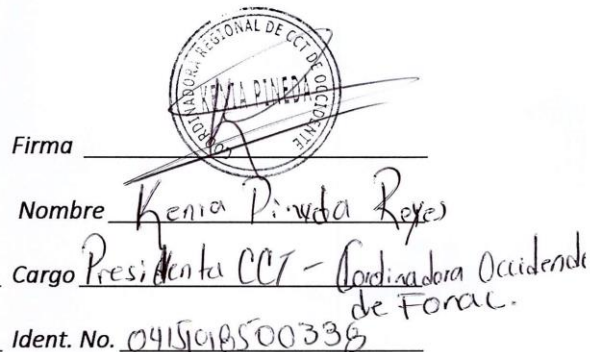 COORDINADORA REGIONAL DE CCT DE OCCIDENTE
KENIA PINEDA
Firma
Nombre Kenia Pineda Reyes
Cargo Presidenta CCT - Coordinadora Occidende
de Fonac.
Ident. No.